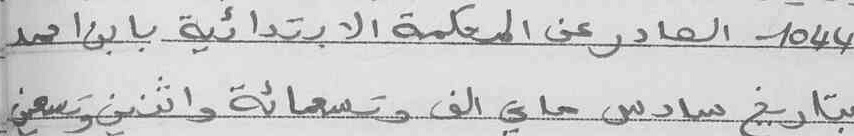 1044- الصادر عن المحكمة الابتدائية بابن احمد
بتاريخ سادس ماي الف وتسعمائة واثنين وتسعين